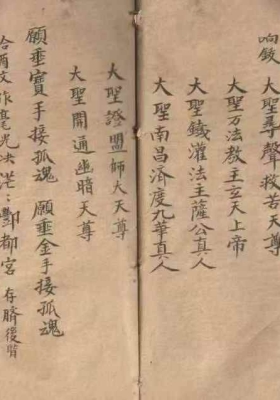 响鈸 大聖尋聲救苦天尊
大聖万法教主玄天上帝
大聖鐵灌法主薩公真人
大聖南昌濟度九華真人
大聖證盟一師大天尊
大聖開通幽暗天尊
願垂寶手接孤魂 願垂金手接孤魂
作毫光 茫〻酆都宮 存臍後